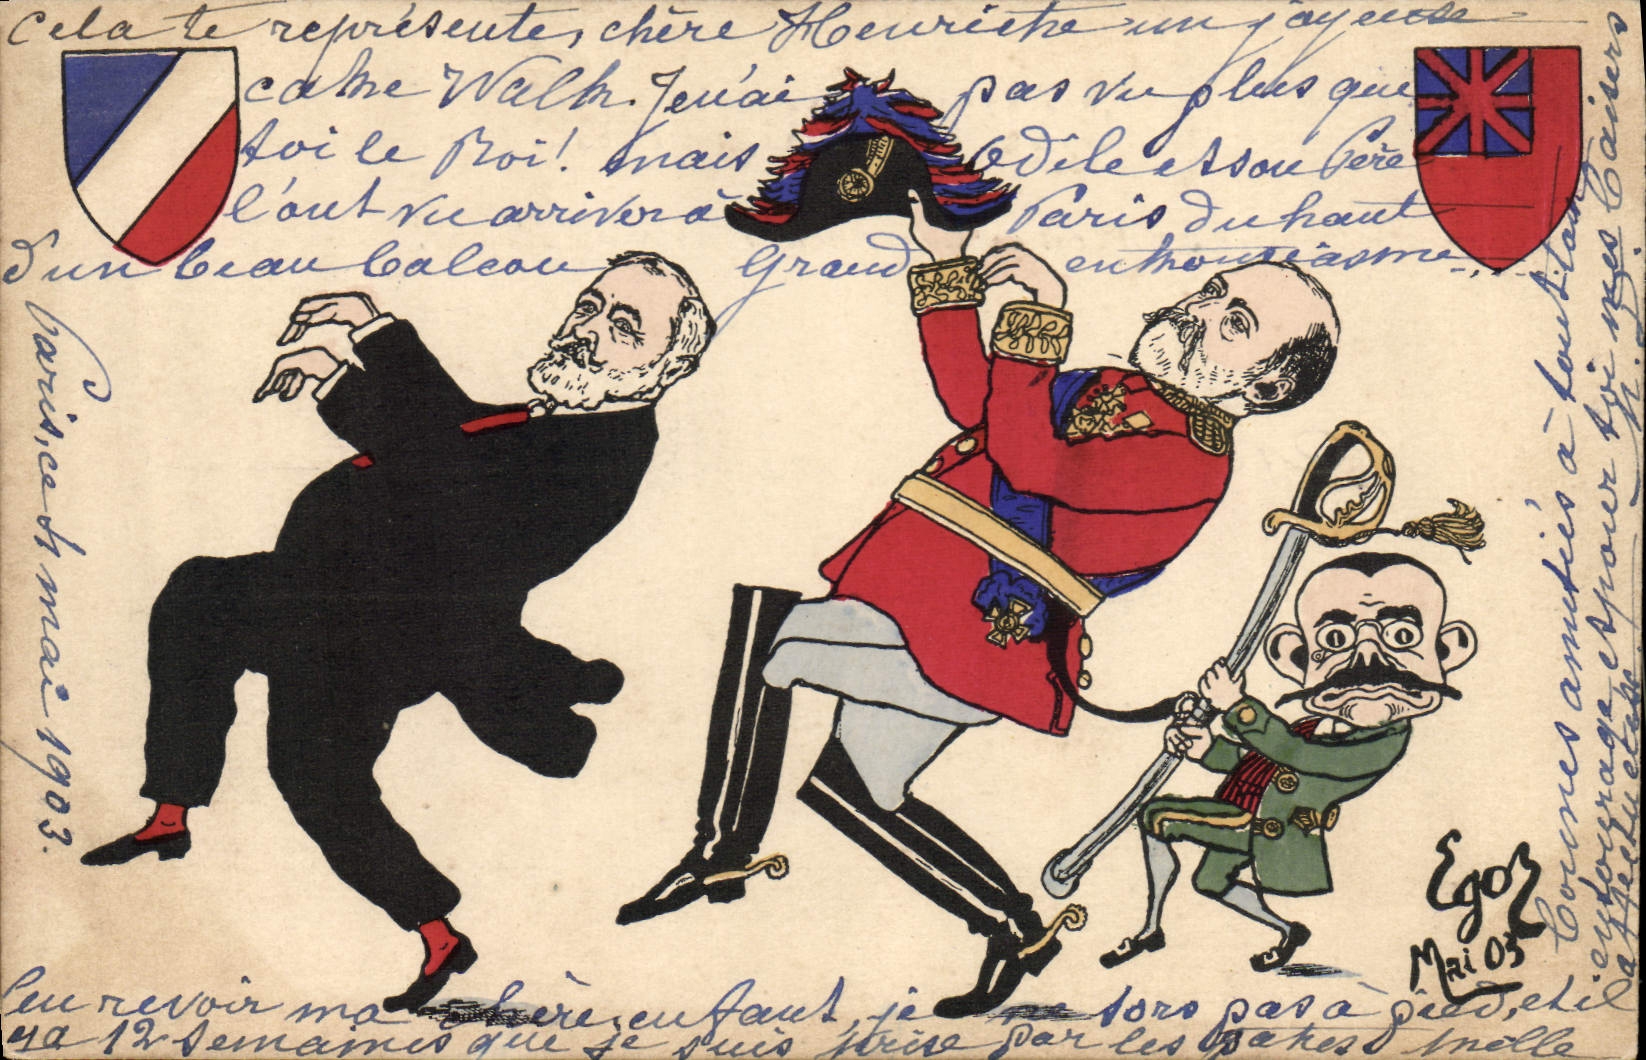 Cela te représente, chère Henriette un joyeuse
cake Walk. Je n'ai pas vu plus que
toi le Roi! mais Odile et son Père
l'ont vu arriver à Paris du haut
d'un beau balcon Grand enthousiasme...
Paris, ce 4 mai 1903.
Egor
Mai 03
Bonnes amitiés à tout
entourage et pour toi mes baisers
Au revoir ma chère enfant, je ne sors pas à pied, et il
ya 12 semaines que je suis prise par les